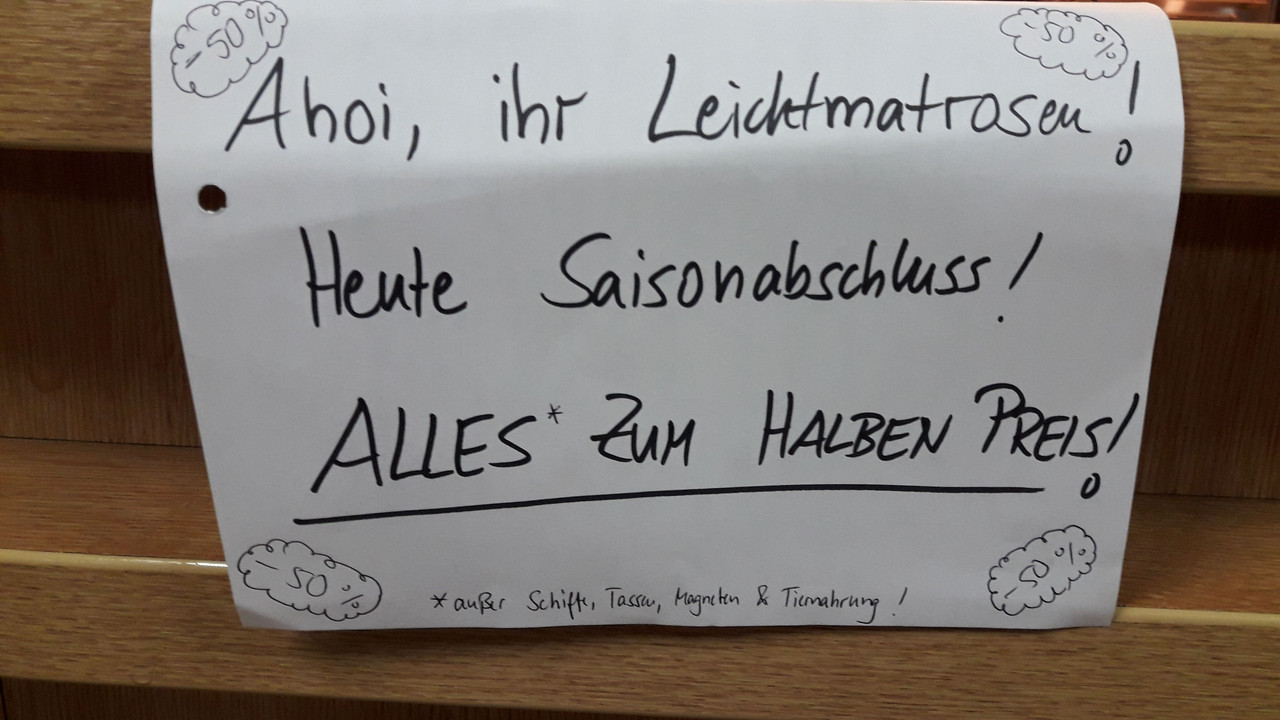 -50% -50%
Ahoi, ihr Leichtmatrosen!
Heute Saisonabschluss!
ALLES* ZUM HALBEN PREIS!
-50% -50%
*außer Schiffe, Tassen, Magneten & Tiernahrung!